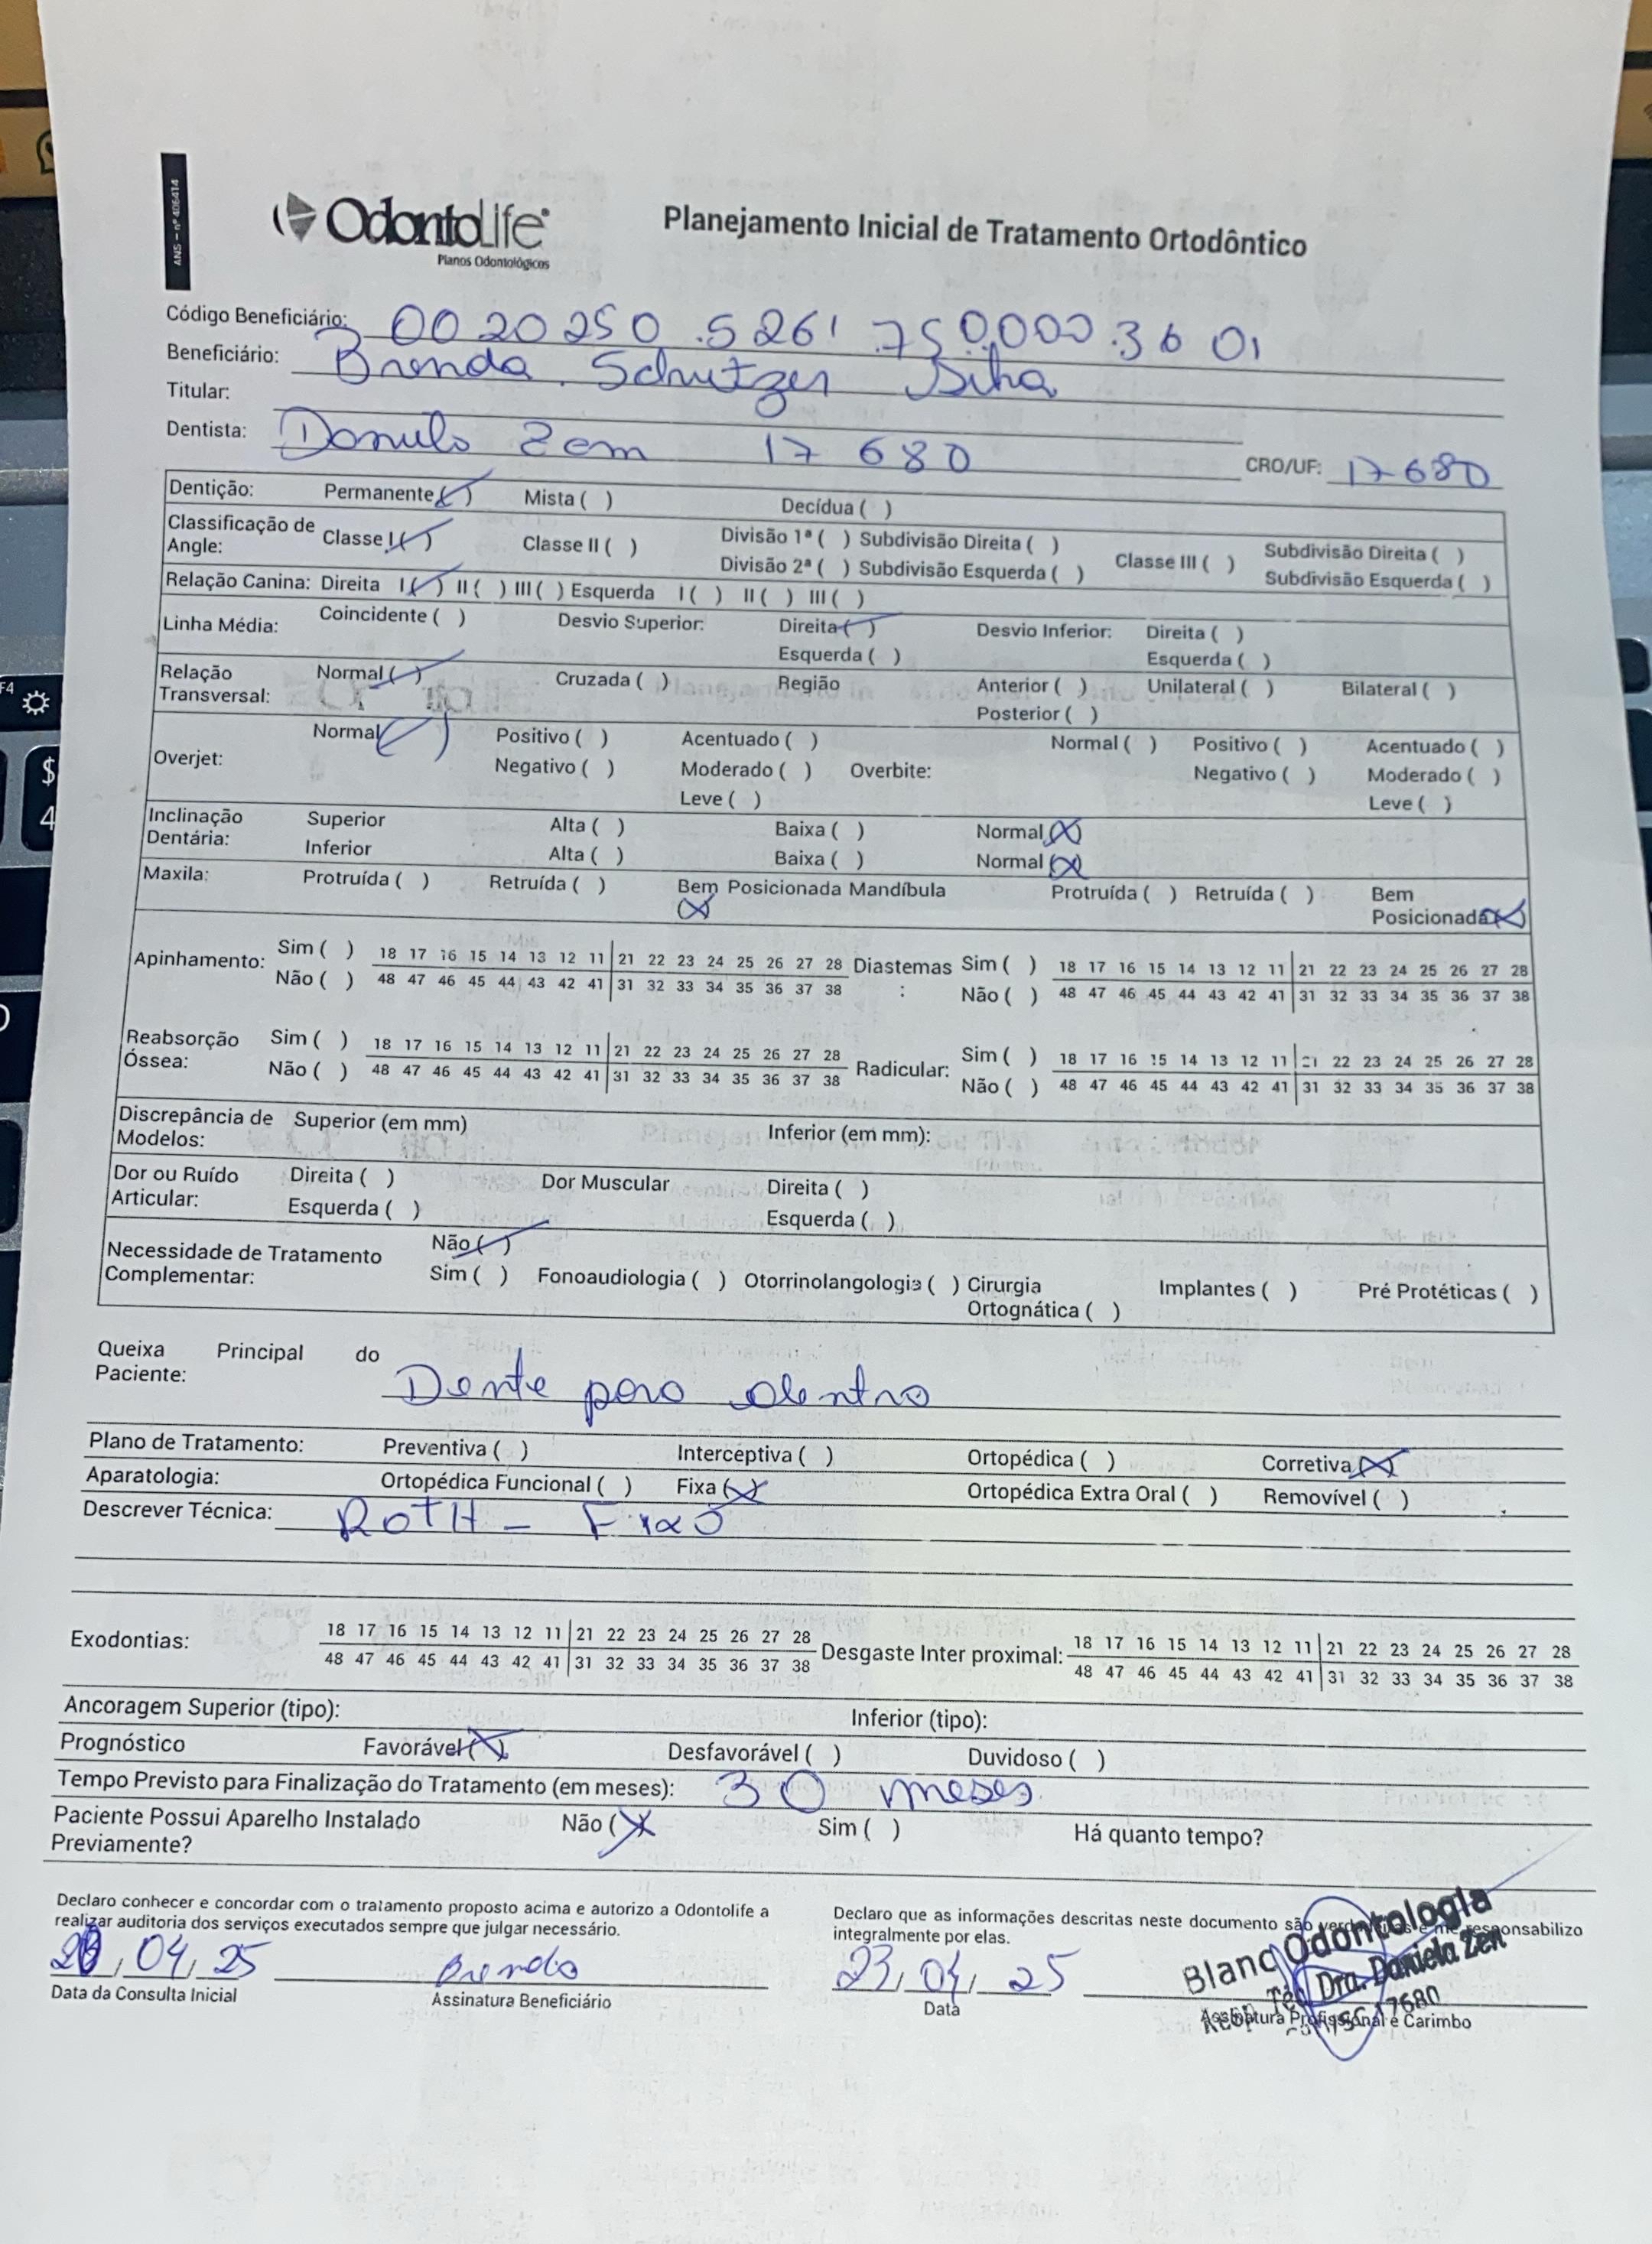 ANS – nº 406414
OdontoLife
Planos Odontológicos
Planejamento Inicial de Tratamento Ortodôntico
Código Beneficiário: 0020250.5261.750.000.3601
Beneficiário: Brenda Schutzer Silva
Titular:
Dentista: Zem 17680 CRO/UF: 17680
Dentição: Permanente ( ) Mista ( ) Decídua ( )
Classificação de Angle: Classe I ( ) Classe II ( ) Divisão 1ª ( ) Subdivisão Direita ( ) Classe III ( ) Subdivisão Direita ( )
Divisão 2ª ( ) Subdivisão Esquerda ( ) Subdivisão Esquerda ( )
Relação Canina: Direita I ( ) II ( ) III ( ) Esquerda I ( ) II ( ) III ( )
Linha Média: Coincidente ( ) Desvio Superior: Direita ( ) Desvio Inferior: Direita ( )
Esquerda ( ) Esquerda ( )
Relação Transversal: Normal ( ) Cruzada ( ) Região Anterior ( ) Unilateral ( ) Bilateral ( )
Posterior ( )
Overjet: Normal ( ) Positivo ( ) Acentuado ( ) Overbite: Normal ( ) Positivo ( ) Acentuado ( )
Negativo ( ) Moderado ( ) Negativo ( ) Moderado ( )
Leve ( ) Leve ( )
Inclinação Dentária: Superior Alta ( ) Baixa ( ) Normal (X)
Inferior Alta ( ) Baixa ( ) Normal (X)
Maxila: Protruída ( ) Retruída ( ) Bem Posicionada (X) Mandíbula Protruída ( ) Retruída ( ) Bem Posicionada (X)
Apinhamento: Sim ( ) 18 17 16 15 14 13 12 11 21 22 23 24 25 26 27 28 Diastemas: Sim ( ) 18 17 16 15 14 13 12 11 21 22 23 24 25 26 27 28
Não ( ) 48 47 46 45 44 43 42 41 31 32 33 34 35 36 37 38 Não ( ) 48 47 46 45 44 43 42 41 31 32 33 34 35 36 37 38
Reabsorção Óssea: Sim ( ) 18 17 16 15 14 13 12 11 21 22 23 24 25 26 27 28 Radicular: Sim ( ) 18 17 16 15 14 13 12 11 21 22 23 24 25 26 27 28
Não ( ) 48 47 46 45 44 43 42 41 31 32 33 34 35 36 37 38 Não ( ) 48 47 46 45 44 43 42 41 31 32 33 34 35 36 37 38
Discrepância de Modelos: Superior (em mm) Inferior (em mm):
Dor ou Ruído Articular: Direita ( ) Dor Muscular Direita ( )
Esquerda ( ) Esquerda ( )
Necessidade de Tratamento Complementar: Não ( )
Sim ( ) Fonoaudiologia ( ) Otorrinolangologia ( ) Cirurgia Ortognática ( ) Implantes ( ) Pré Protéticas ( )
Queixa Principal do Paciente: Dente para dentro
Plano de Tratamento: Preventiva ( ) Interceptiva ( ) Ortopédica ( ) Corretiva (X)
Aparatologia: Ortopédica Funcional ( ) Fixa (X) Ortopédica Extra Oral ( ) Removível ( )
Descrever Técnica: ROTH – Fixo
Exodontias: 18 17 16 15 14 13 12 11 21 22 23 24 25 26 27 28 Desgaste Inter proximal: 18 17 16 15 14 13 12 11 21 22 23 24 25 26 27 28
48 47 46 45 44 43 42 41 31 32 33 34 35 36 37 38 48 47 46 45 44 43 42 41 31 32 33 34 35 36 37 38
Ancoragem Superior (tipo): Inferior (tipo):
Prognóstico Favorável (X) Desfavorável ( ) Duvidoso ( )
Tempo Previsto para Finalização do Tratamento (em meses): 30 meses
Paciente Possui Aparelho Instalado Previamente? Não (X) Sim ( ) Há quanto tempo?
Declaro conhecer e concordar com o tratamento proposto acima e autorizo a Odontolife a
realizar auditoria dos serviços executados sempre que julgar necessário.
Declaro que as informações descritas neste documento são verdadeiras e me responsabilizo
integralmente por elas.
04, 25 Brenda 23, 04, 25
Data da Consulta Inicial Assinatura Beneficiário Data Assinatura Profissional e Carimbo
Blanc Odontologia
Resp. Téc. Dra. Daniela Zen
17680
F4
$
4